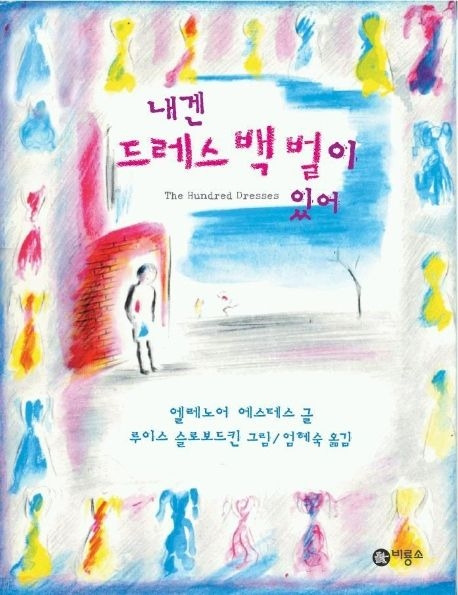 내겐
드레스 백 벌이
The Hundred Dresses
있어
엘레노어 에스테스 글
루이스 슬로보드킨 그림/엄혜숙 옮김
비룡소